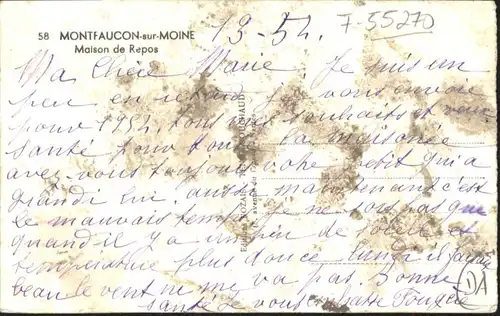 58 MONTFAUCON-sur-MOINE
Maison de Repos
13-54.
7-55270
Ma Chère Marie. Je suis un
peu en retard je vous envoie
pour 1954, tous souhaits et
santé pour toute la maisonée
avez vous toujours votre petit qui a
grandi lui aussi maintenant c'est
le mauvais temps je ne sors pas que
quand il y a un peu de soleil et
température plus douce
beau le vent ne me va pas. Bonne
santé Je vous